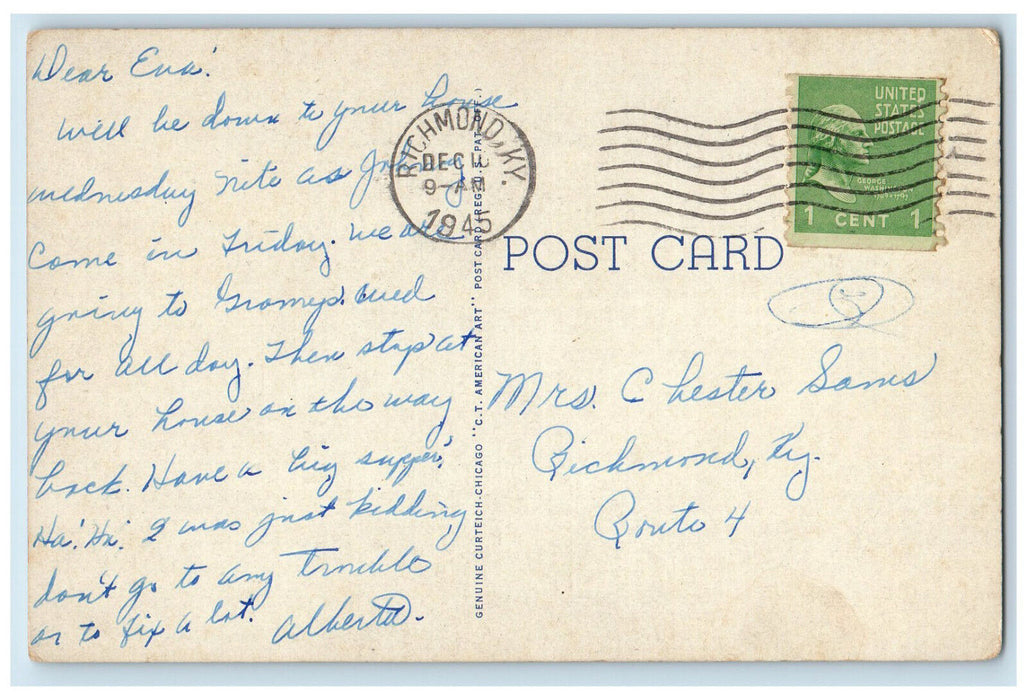 Dear Eva!
Will be down to your house
wednesday nite as Johnny
Come in Friday. We are
going to Gramp's. wed
for all day. Then stop at
your house on the way
back. Have a big supper,
Ha! Ha! I was just kidding
don't go to any trouble
or to fix a lot. Alberta.
RICHMOND, KY.
DEC
9-AM
1945
UNITED
STATES
POSTAGE
GEORGE
1 CENT 1
POST CARD
Mrs. Chester Sams
Richmond, Ky.
Route 4
GENUINE CURTEICH-CHICAGO "C.T. AMERICAN ART" POST CARD (REG. U.S. PAT. OFF.)